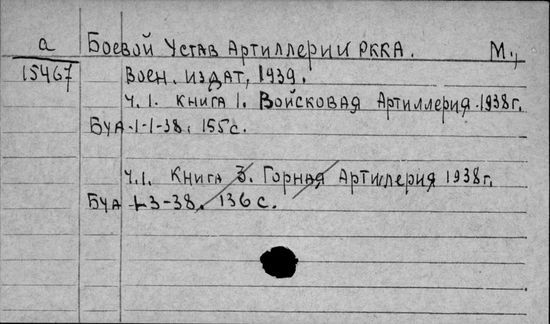 а Боевой Устав Артиллерии РККА. М.,
15467 Воен. издат, 1939.
ч.1. книга 1. Войсковая Артиллерия. 1938г.
БУА-1-1-38. 155с.
ч.1. Книга 3. Горная Артиллерия 1938г.
БУА-1-3-38. 136с.